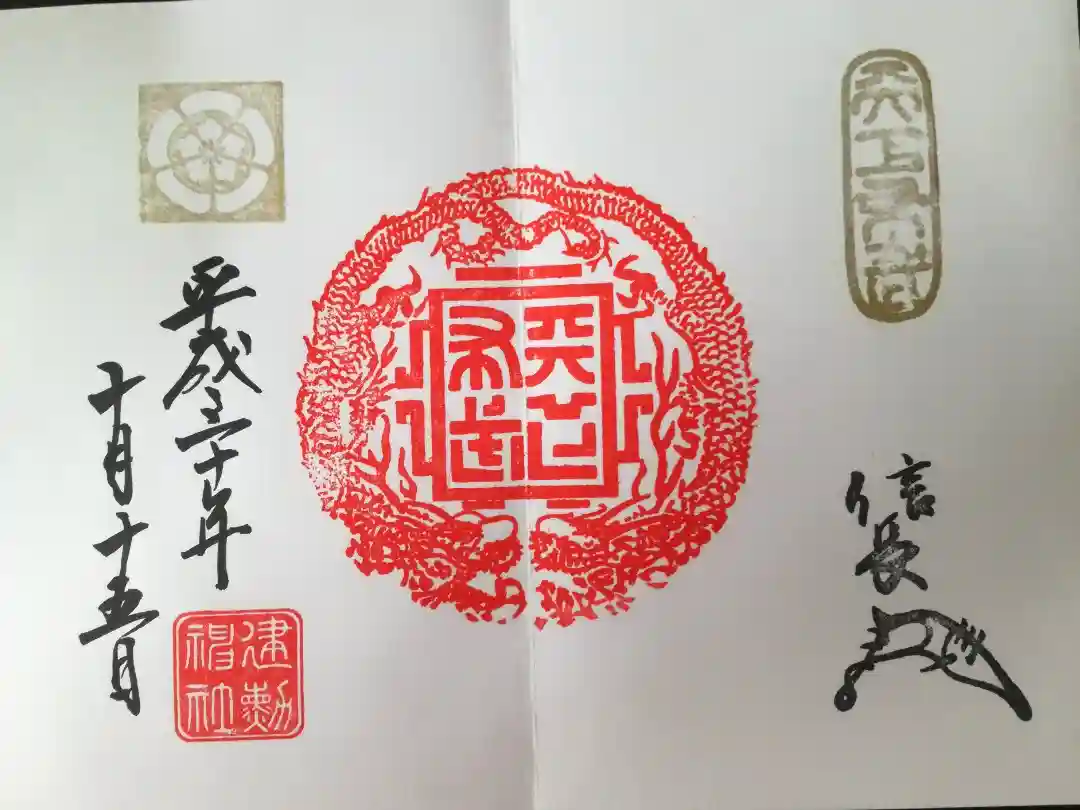 天下布武
信長
天下
布武
平成三十年
十月十五日
建勲
神社